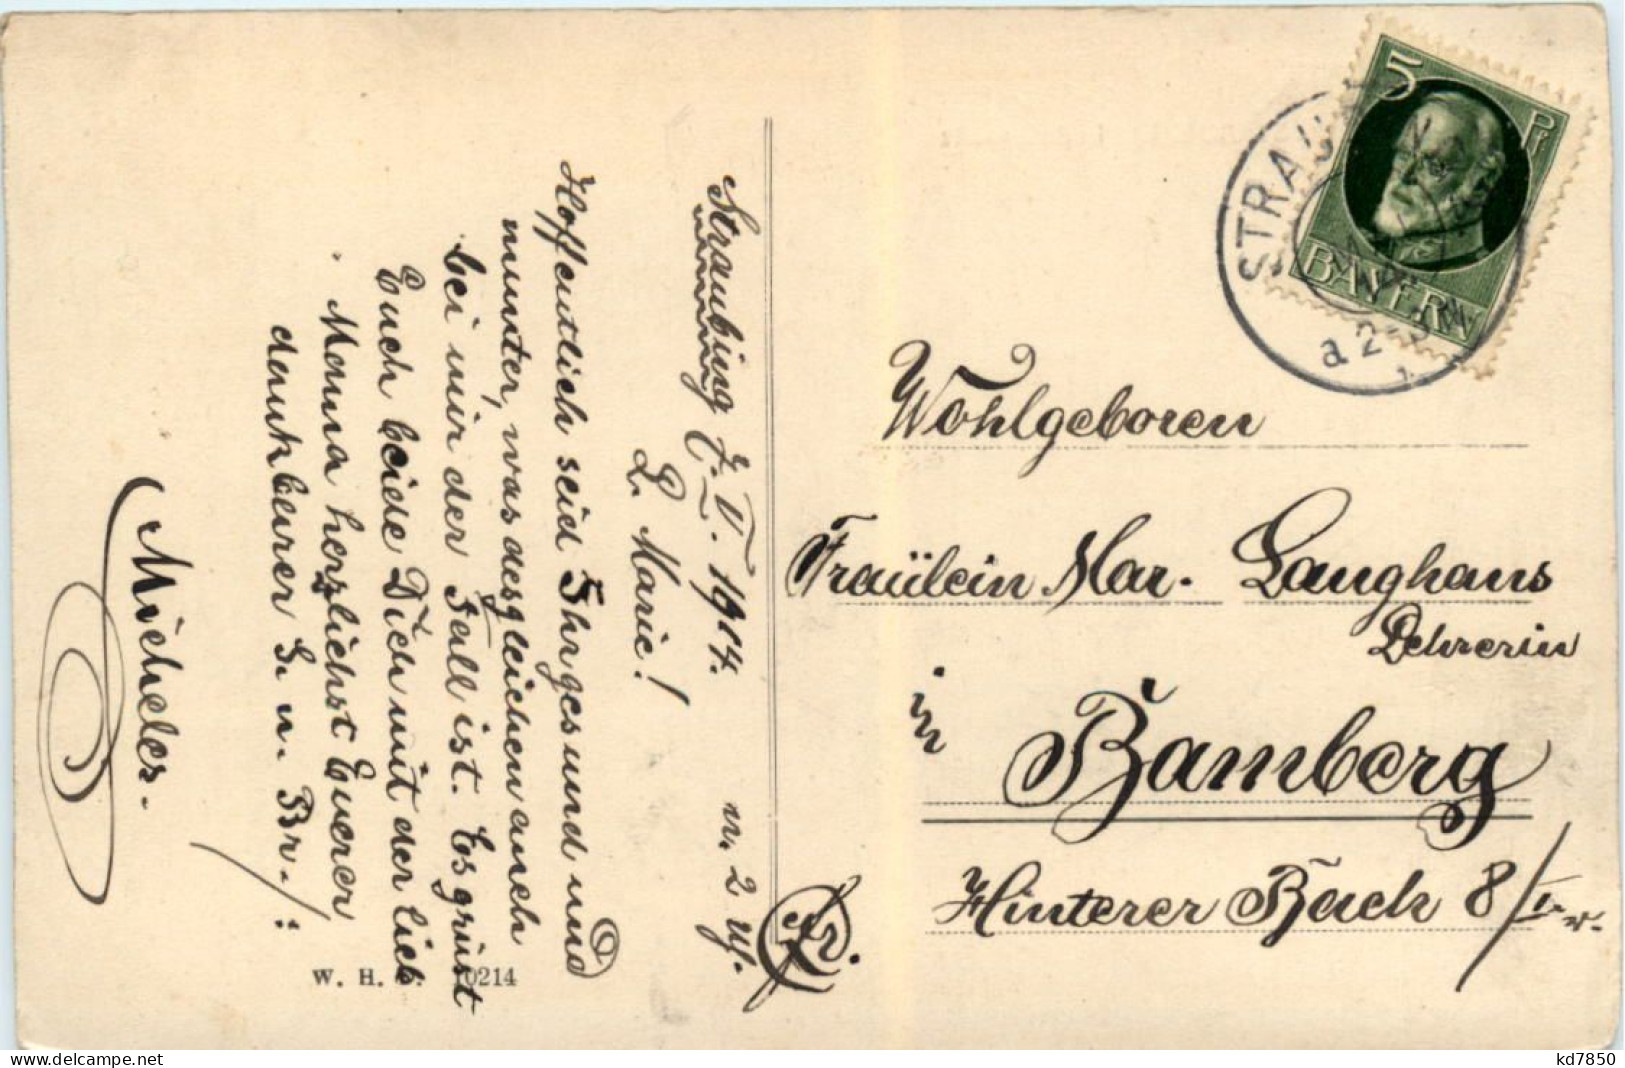 Straubing 7. V. 1914. n. 2 Uf.
L. Marie!
Hoffentlich seid Ihr gesund und
munter, was desgleichen auch
bei mir der Fall ist. Es grüsst
Euch beide Dich mit der lieb
Mama herzlichst Euerer
dankbarer S. u. Br.
Micheler.
W. H. 0214
5 Pf
BAYERN
STRAU
a 2
Wohlgeboren
Fräulein Mar. Langhans
Lehrerin
in
Bamberg
Hinterer Bach 8/I.
delcampe.net
kd7850